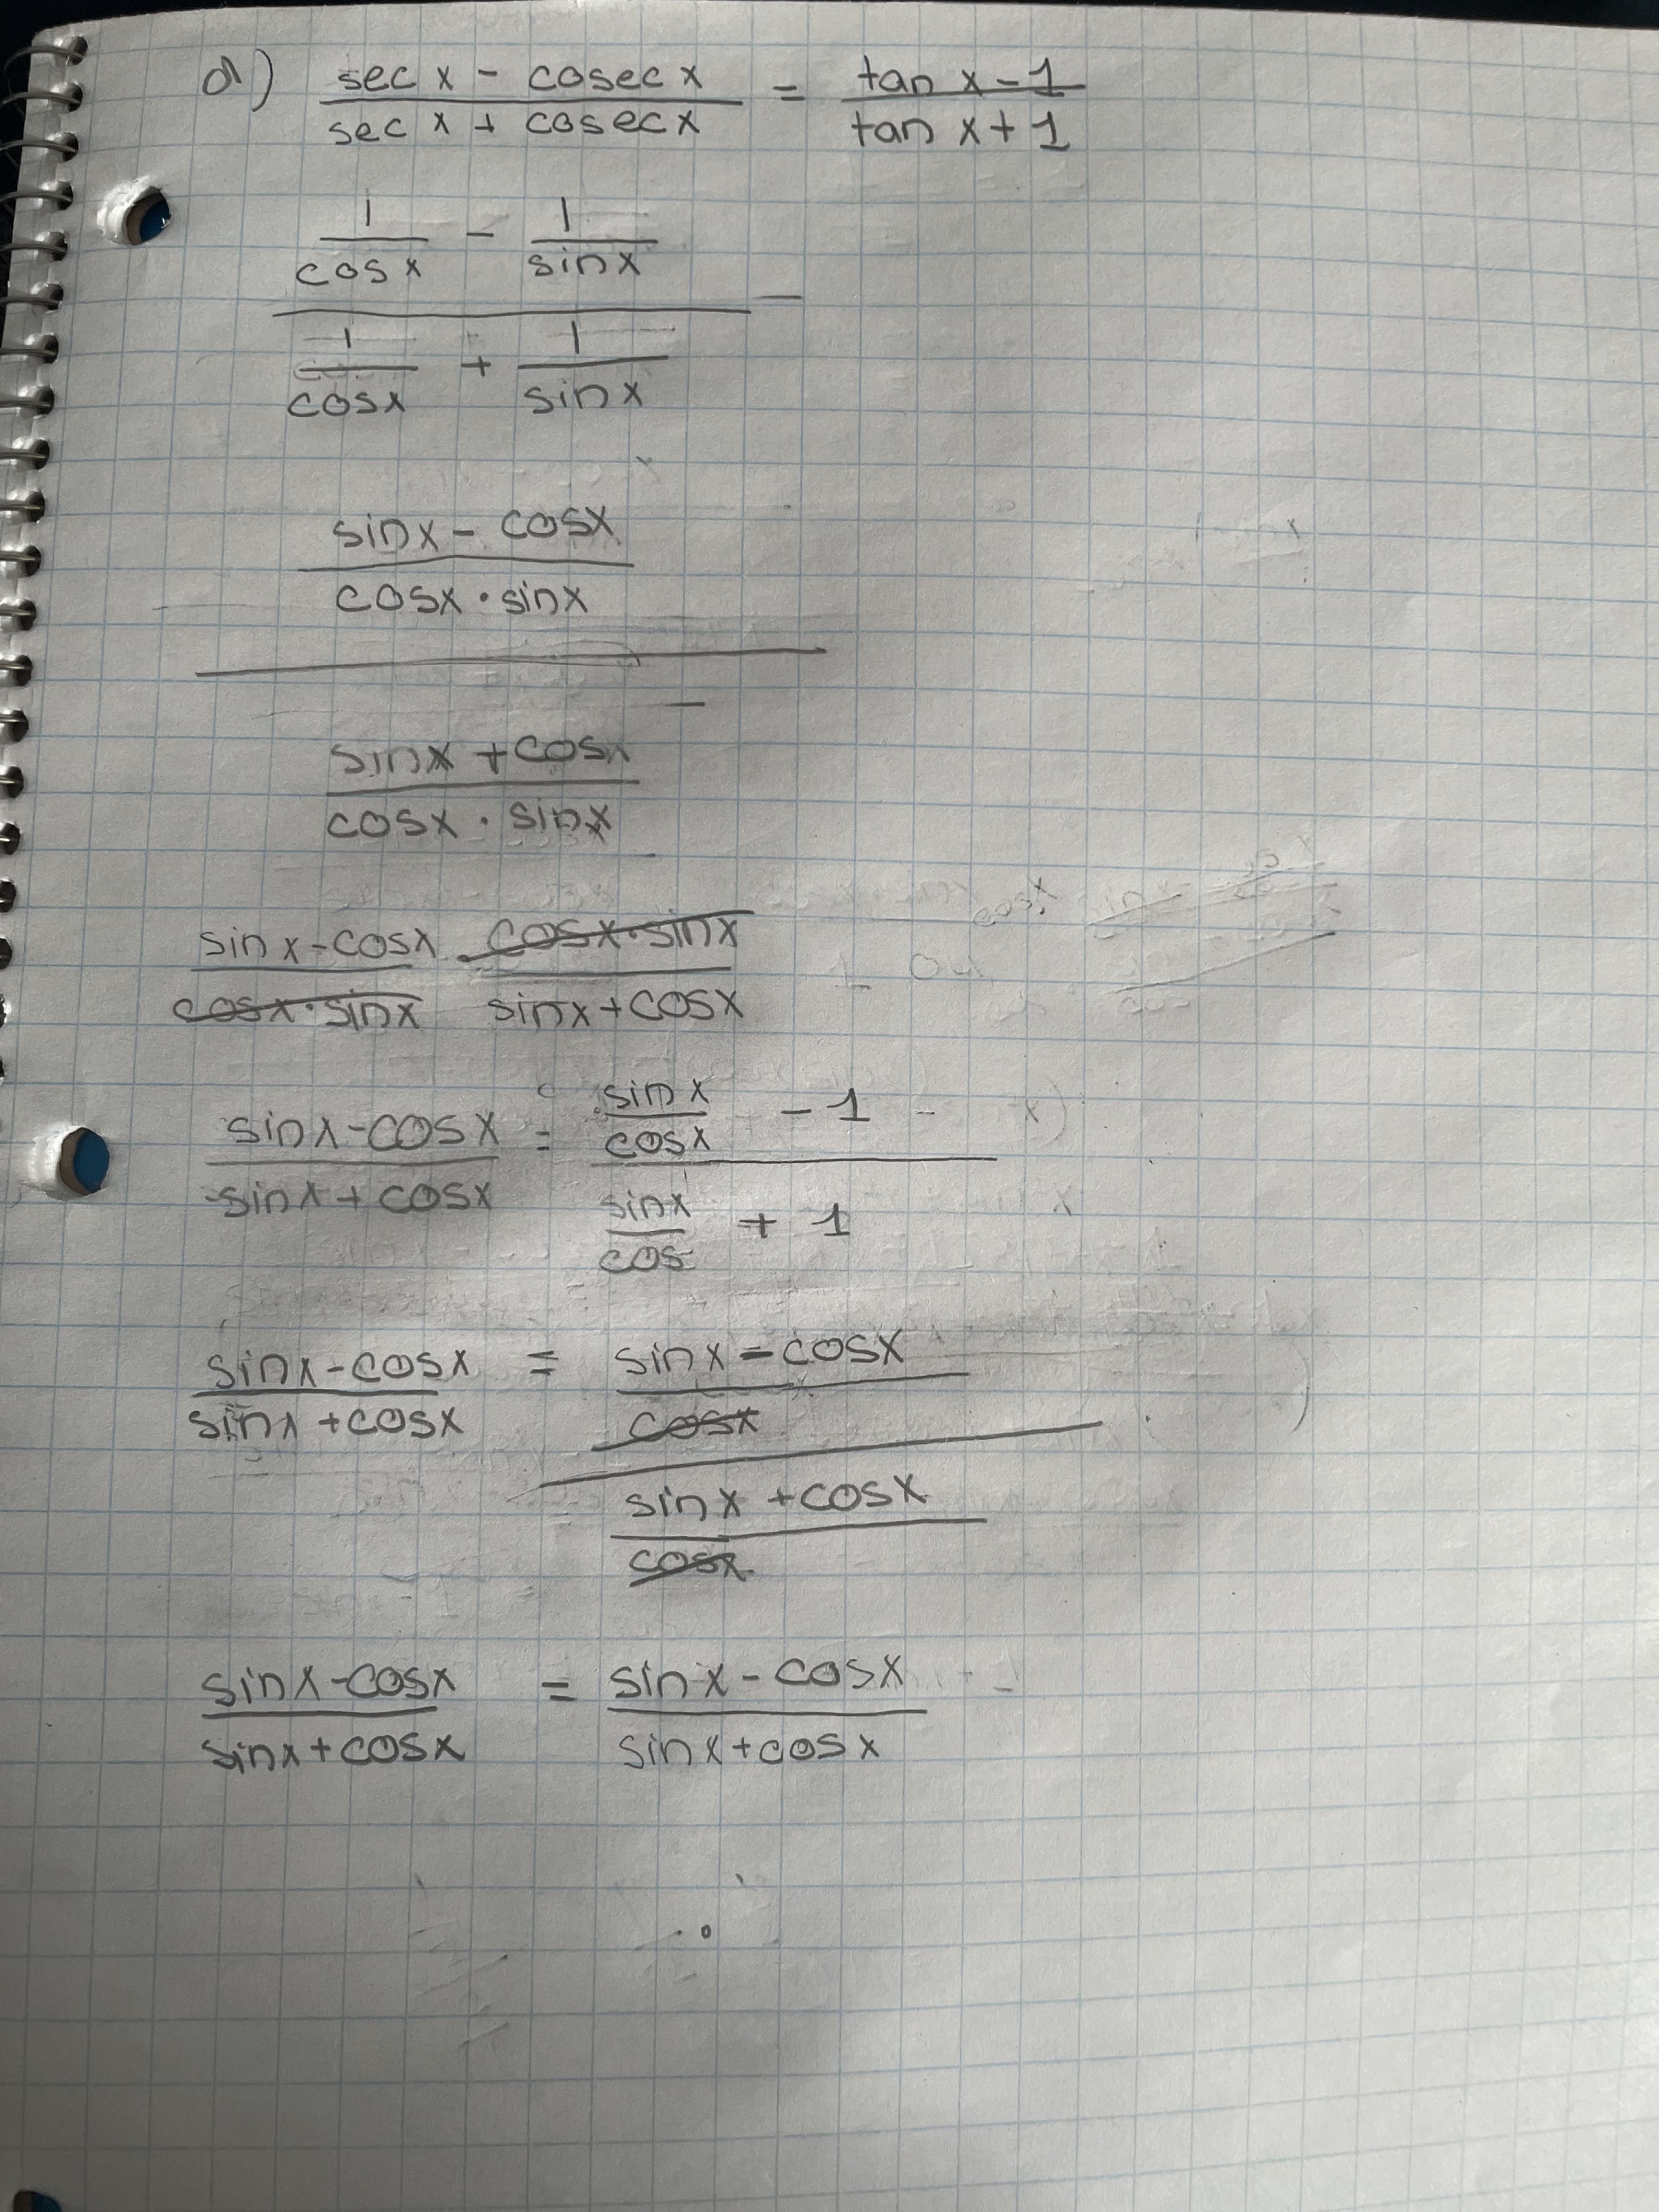 d) sec x - cosec x = tan x - 1
sec x + cosec x tan x + 1
1 - 1
cos x sin x
1 + 1
cosx sin x
sinx - cosx
cosx · sinx
sinx + cosx
cosx · sinx
sin x - cosx cosx·sinx
cosx·sinx sinx + cosx
sinx - cosx = sinx - 1
sinx + cosx cosx
sinx + 1
cos
sinx - cosx = sinx - cosx
sinx + cosx cosx
sinx + cosx
cosx
sinx - cosx = sinx - cosx
sinx + cosx sinx + cosx